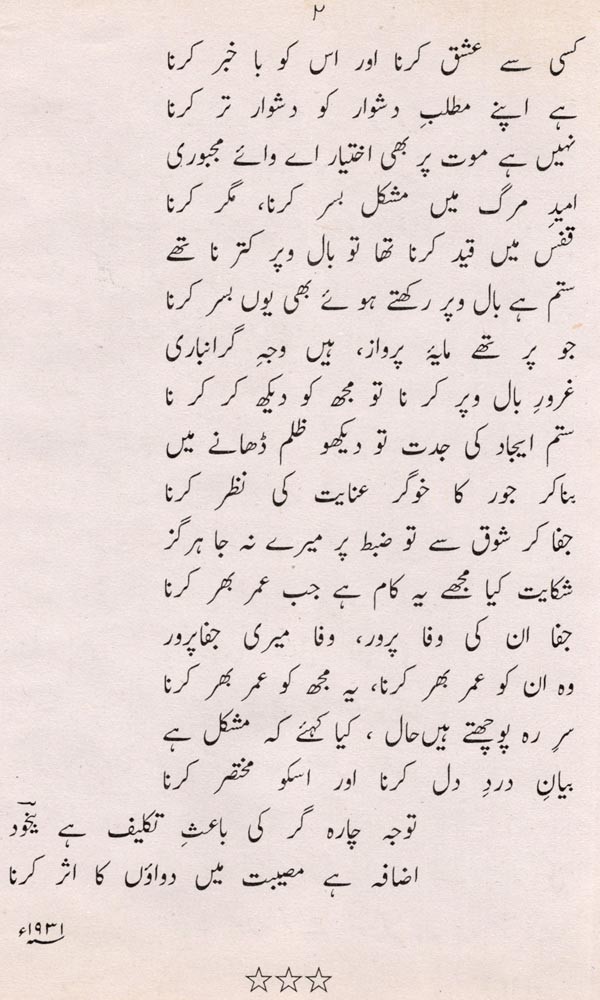 ۲
کسی سے عشق کرنا اور اس کو با خبر کرنا
ہے اپنے مطلبِ دشوار کو دشوار تر کرنا
نہیں ہے موت پر بھی اختیار اے وائے مجبوری
امیدِ مرگ میں مشکل بسر کرنا، مگر کرنا
قفس میں قید کرنا تھا تو بال وپر کتر نا تھے
ستم ہے بال وپر رکھتے ہوئے بھی یوں بسر کرنا
جو پر تھے مایۂ پرواز، ہیں وجہِ گرانباری
غرورِ بال وپر کر نا تو مجھ کو دیکھ کر کر نا
ستم ایجاد کی جدت تو دیکھو ظلم ڈھانے میں
بناکر جور کا خوگر عنایت کی نظر کرنا
جفا کر شوق سے تو ضبط پر میرے نہ جا ہرگز
شکایت کیا مجھے یہ کام ہے جب عمر بھر کرنا
جفا ان کی وفا پرور، وفا میری جفاپرور
وہ ان کو عمر بھر کرنا، یہ مجھ کو عمر بھر کرنا
سرِ رہ پوچھتے ہیں حال ، کیا کہئے کہ مشکل ہے
بیانِ دردِ دل کرنا اور اسکو مختصر کرنا
توجہ چارہ گر کی باعثِ تکلیف ہے بیخود
اضافہ ہے مصیبت میں دواؤں کا اثر کرنا
۱۹۳۱ء